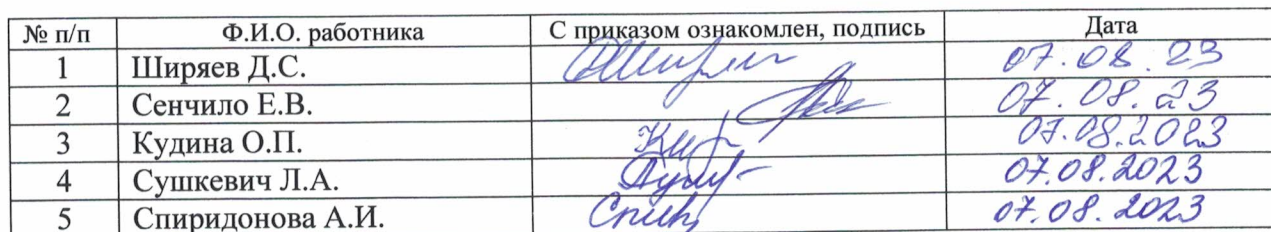 № п/п Ф.И.О. работника С приказом ознакомлен, подпись Дата
1 Ширяев Д.С. 07.08.23
2 Сенчило Е.В. 07.08.23
3 Кудина О.П. 07.08.2023
4 Сушкевич Л.А. 07.08.2023
5 Спиридонова А.И. 07.08.2023